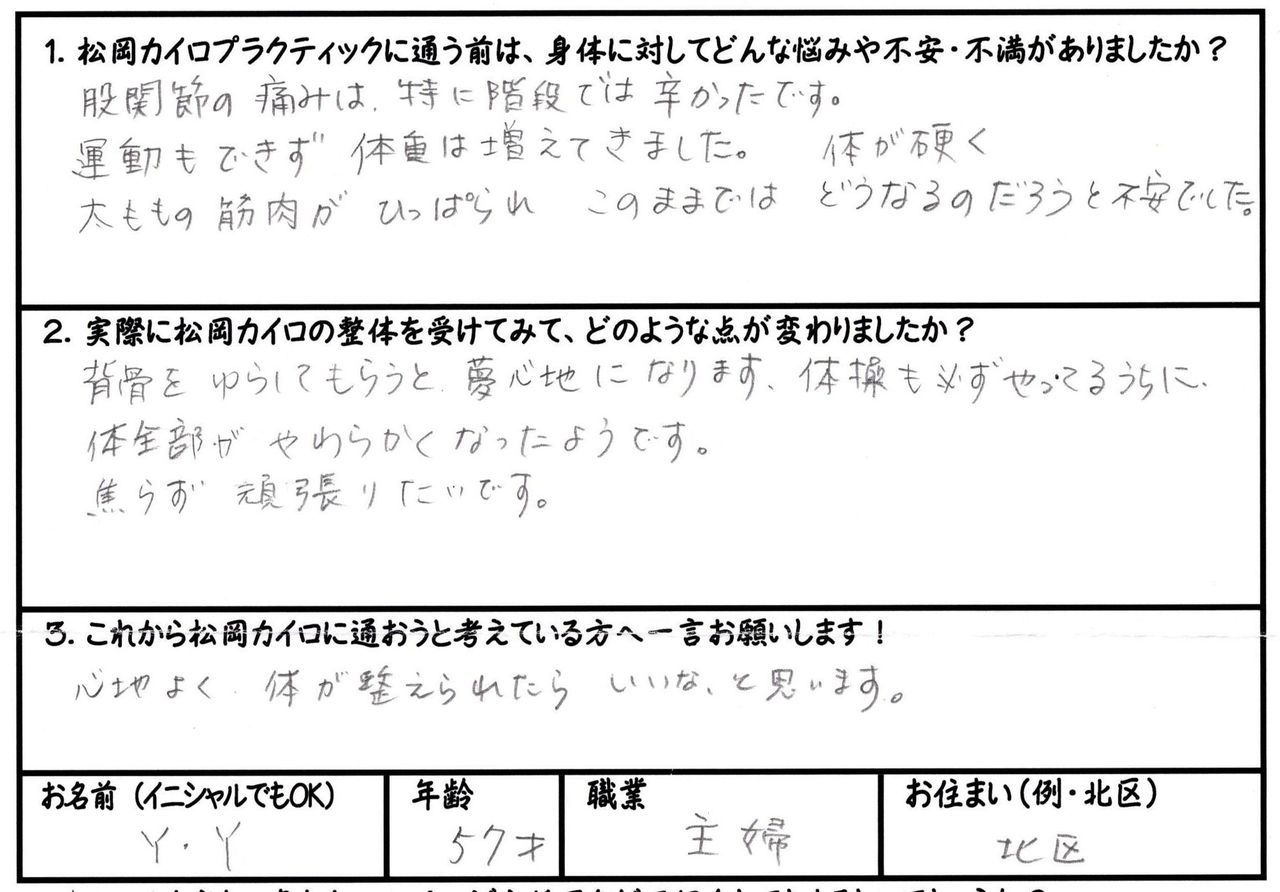 1. 松岡カイロプラクティックに通う前は、身体に対してどんな悩みや不安・不満がありましたか？
股関節の痛みは、特に階段では辛かったです。
運動もできず 体重は増えてきました。 体が硬く
太ももの筋肉が ひっぱられ このままでは どうなるのだろうと不安でした。
2. 実際に松岡カイロの整体を受けてみて、どのような点が変わりましたか？
背骨を ゆらしてもらうと、夢心地になります、体操も必ずやってるうちに、
体全部が やわらかくなったようです。
焦らず 頑張りたいです。
3. これから松岡カイロに通おうと考えている方へ一言お願いします！
心地よく、体が整えられたら いいな、と思います。
お名前（イニシャルでもOK） 年齢 職業 お住まい（例・北区）
Y・Y 57才 主婦 北区